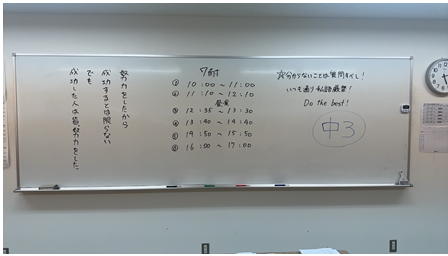 努力をしたから
成功するとは限らない
でも
成功した人は皆努力をした。
7コマ
② 10:00 ~ 11:00
③ 11:10 ~ 12:10
昼食
③ 12:35 ~ 13:30
④ 13:40 ~ 14:40
⑤ 14:50 ~ 15:50
⑥ 16:00 ~ 17:00
☆分からないことは質問すべし!
いつも通り私語厳禁!
Do the best!
中3